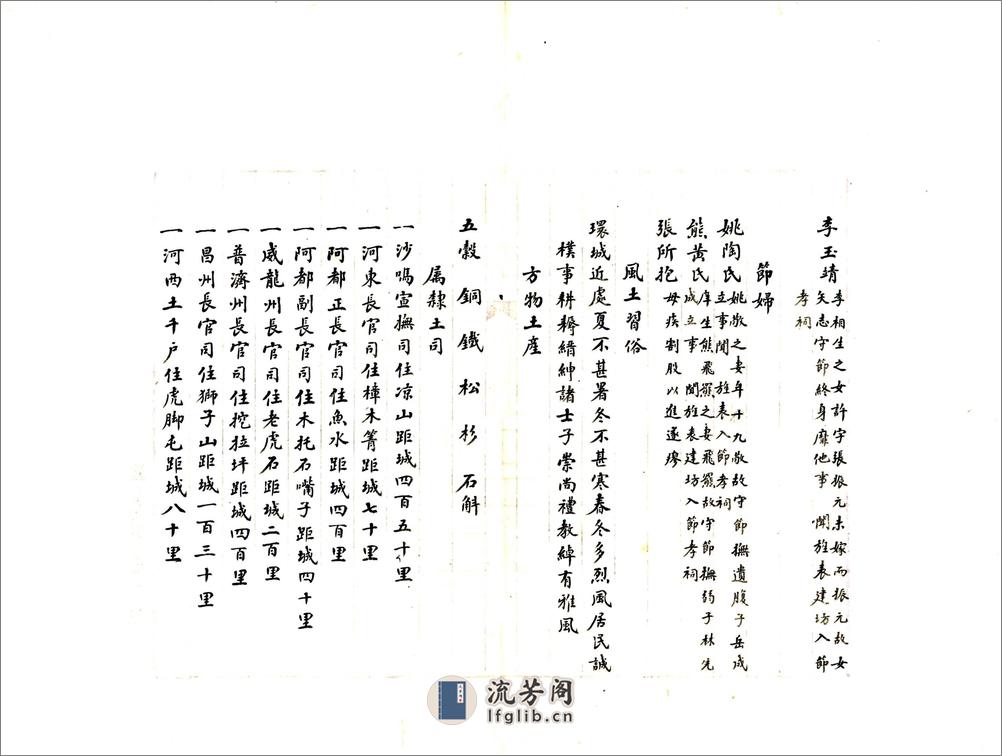 李玉靖李相生之女許字張振元未嫁而振元故女
矢志守節終身靡他事 聞旌表建坊入節
孝祠
節婦
姚陶氏姚敬之妻年十九敬故守節撫遺腹子岳成
立事聞 旌表入節孝祠
熊黃氏庠生熊飛羆之妻飛羆故守節撫韵子林先
成立事 聞旌表建坊入節孝祠
張所抱母疾割股以進遂瘳
風土習俗
環城近處夏不甚暑冬不甚寒春冬多烈風居民誠
樸事耕耨縉紳諸士子崇尚禮教綽有雅風
方物土産
五穀 銅 鐵 松 杉 石斛
属隸土司
一沙嗎宣撫司住凉山距城四百五十里
一河東長官司住樟木箐距城七十里
一阿都正長官司住魚水距城四百里
一阿都副長官司住木托石嘴子距城四十里
一威龍州長官司住老虎石距城二百里
一普濟州長官司住挖拉坪距城四百里
一昌州長官司住獅子山距城一百三十里
一河西土千戶住虎脚屯距城八十里
流芳阁
lfglib.cn